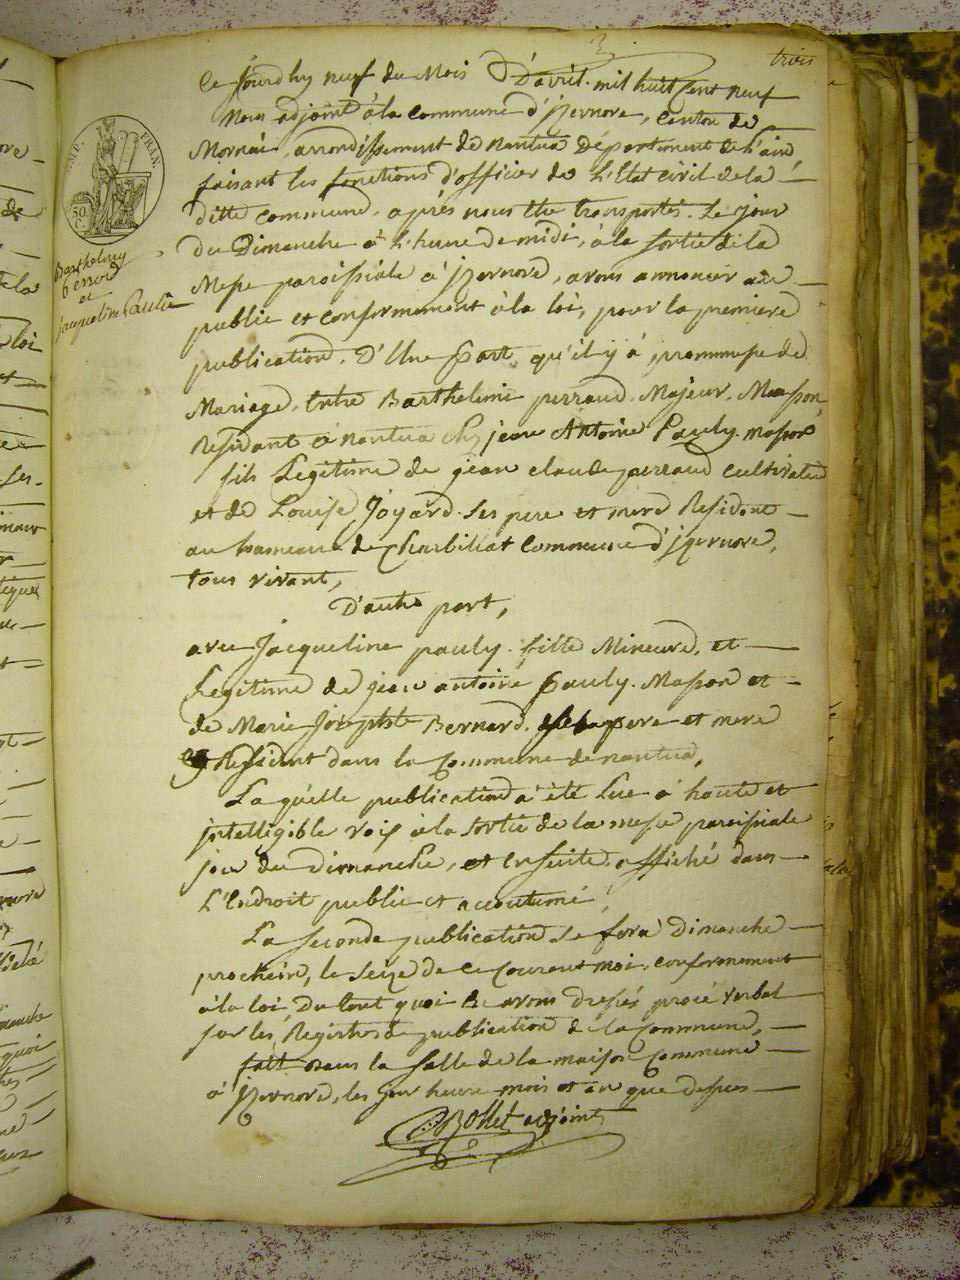 3.
trois
Ce Jourdhy neuf du Mois D'avril mil huit sent neuf
Nous adjoint à la commune d'jzernore, Canton de
Mornai, arrondissement de nantua Département de L'ain
faisant les fonctions d'officier de L'Etat civil de la
ditte commune, après nous être transportés. Le Jour
du Dimanche à L'hure de midi, à la sortie de la
Messe paroissiale à jzernore, avons annoncer au
public et conformement à la loi, pour la premiere
publication. D'Une part, qu'il y à prommesse de
Mariage, Entre Barthelemi perraud. Majeur. Masson
Residant à nantua chez jean Antoine Pauly. masson
fils Legitime de jean claude perraud cultivateur
et de Louise Joyard. Ses pere et mere Résident
au hameau de Charbillat Commune d'jzernore,
tous vivant,
D'autre part,
avec Jacqueline pauly. fille Mineure, et
Legitime de jean antoine pauly. Masson et
de Marie Josephte Bernard. pere et mere
Resident dans la Commune de nantua,
La qu'elle publication a été Lue à haute et
jntelligible voix à la Sortie de la messe paroissiale
jour du dimanche, et ensuite affiché dans
L'Endroit public et accoutumé,
La Seconde publication se fera Dimanche
prochein, le Seize de ce Courant moi, conformement
à la loi. Du tout quoi avons dressés procé verbal
sur les Registres de publication de la Commune,
fait dans la Salle de la maison Commune
à jzernore, les jour heure mois et an que dessus
Bollet adjoint
EMP. FRAN.
50 C.
Barthelmy
Perroud
et
jacqueline Paulie